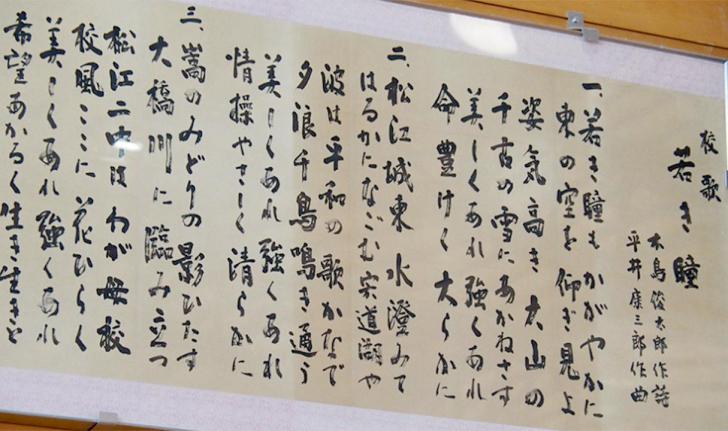 校歌
若き瞳
木島俊太郎作詩
平井康三郎作曲
一、若き瞳もかがやかに
東の空を仰ぎ見よ
姿気高き大山の
千古の雪にあかねさす
美しくあれ強くあれ
命豊けく大らかに
二、松江城東水澄みて
はるかになごむ宍道湖や
波は平和の歌かなで
夕浪千鳥鳴き通う
美しくあれ強くあれ
情操やさしく清らかに
三、嵩のみどりの影ひたす
大橋川に臨み立つ
松江二中はわが母校
校風ここに花ひらく
美しくあれ強くあれ
希望あかるく生き生きと